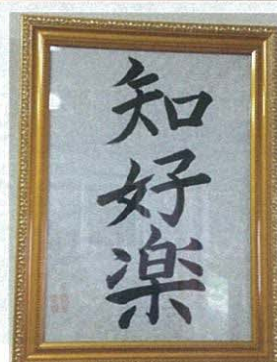 知好楽